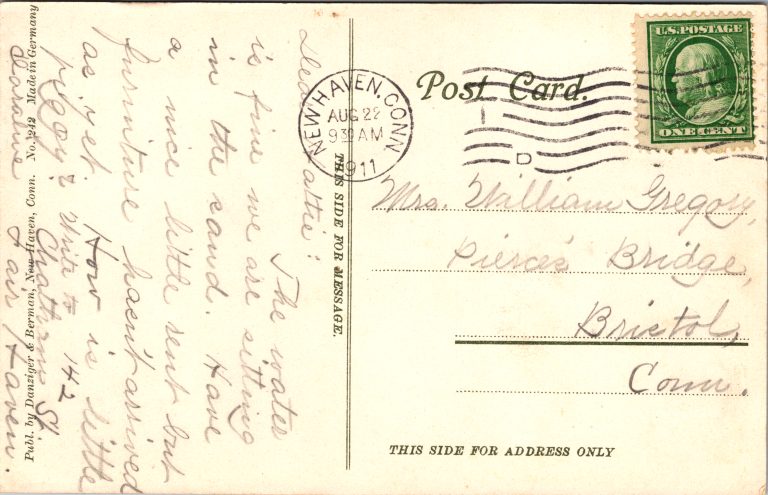 Dear Hattie:
The water
is fine we are sitting
in the sand. Have
a nice little rent but
furniture hasn't arrived
as yet. How is little
piggy? Write to 142
Chatham St.
Fair Haven.
Publ. by Danziger & Berman, New Haven, Conn. No. 242 Made in Germany
THIS SIDE FOR MESSAGE.
Post Card.
NEW HAVEN, CONN
AUG 22
930 AM
1911
D
U.S. POSTAGE
ONE CENT
Mrs. William Gregory,
Pierce's Bridge,
Bristol,
Conn.
THIS SIDE FOR ADDRESS ONLY